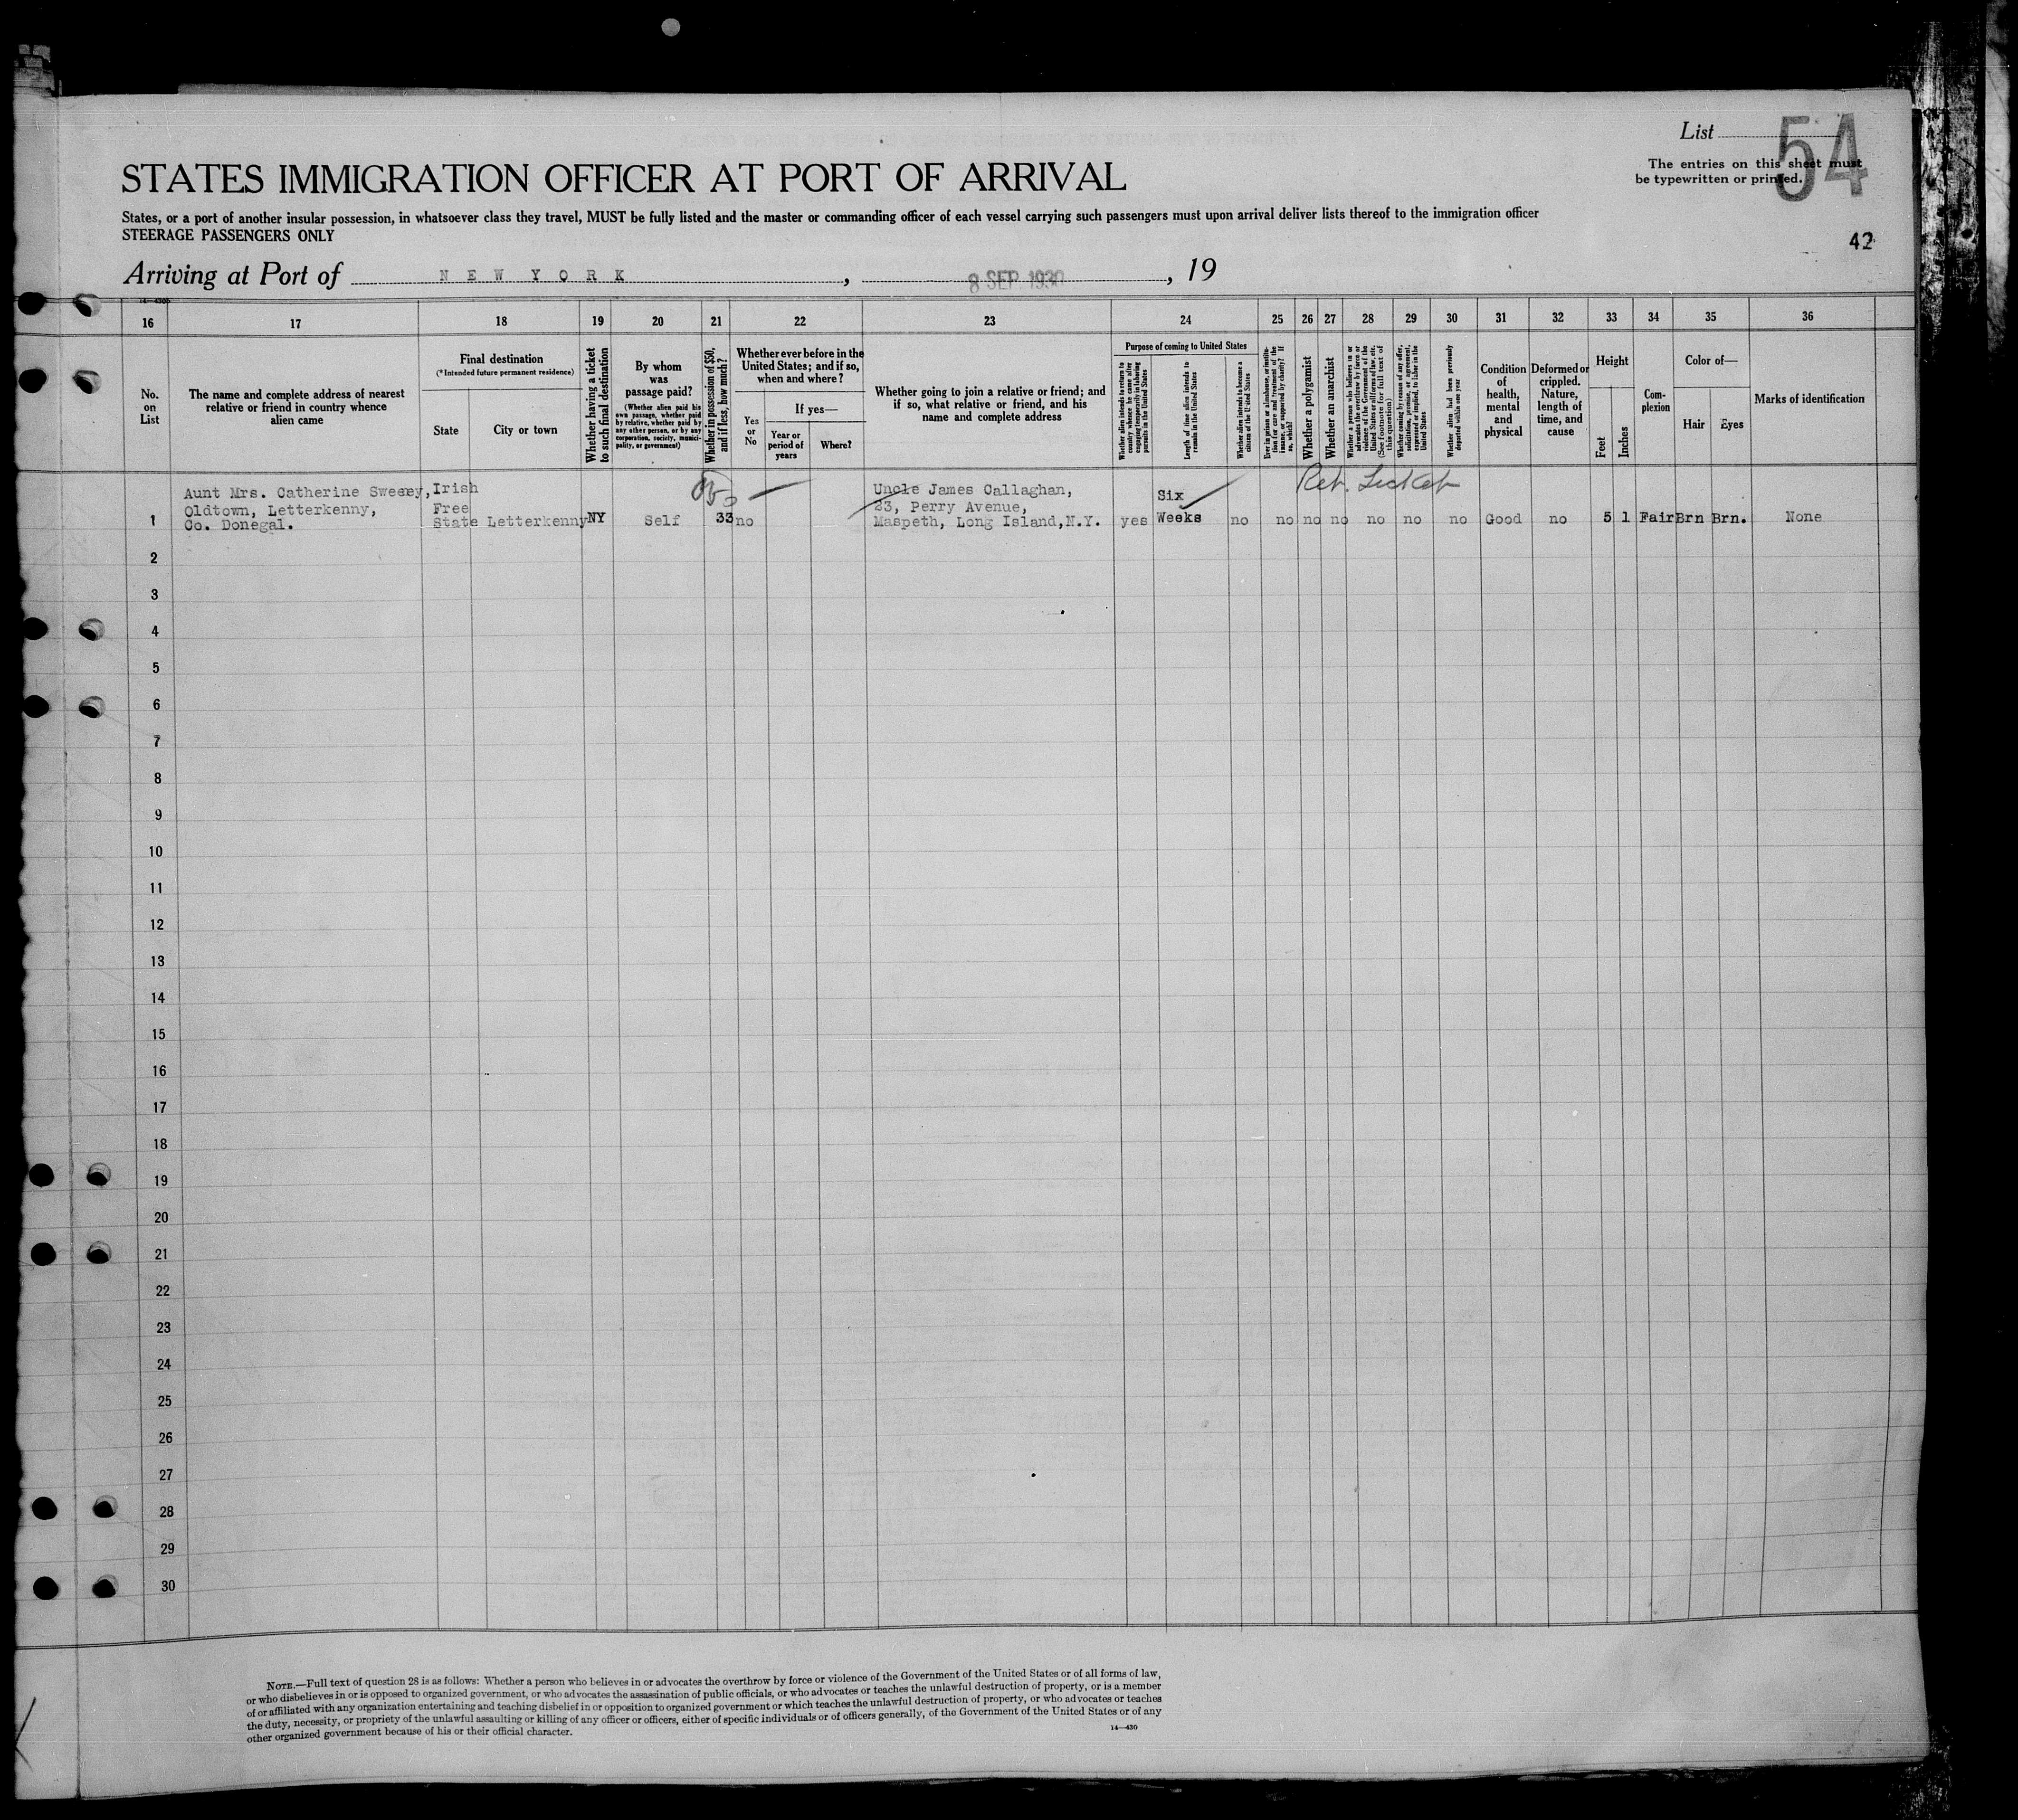 List
54
The entries on this sheet must
be typewritten or printed.
42
STATES IMMIGRATION OFFICER AT PORT OF ARRIVAL
States, or a port of another insular possession, in whatsoever class they travel, MUST be fully listed and the master or commanding officer of each vessel carrying such passengers must upon arrival deliver lists thereof to the immigration officer
STEERAGE PASSENGERS ONLY
Arriving at Port of NEW YORK, 8 SEP 1930, 19
16 17 18 19 20 21 22 23 24 25 26 27 28 29 30 31 32 33 34 35 36
No.
on
List
The name and complete address of nearest
relative or friend in country whence
alien came
Final destination
(*Intended future permanent residence)
State
City or town
Whether having a ticket
to such final destination
By whom
was
passage paid?
(Whether alien paid his
own passage, whether paid
by relative, whether paid by
any other person, or by any
corporation, society, munici-
pality, or government)
Whether in possession of $50,
and if less, how much?
Whether ever before in the
United States; and if so,
when and where?
Yes
or
No
If yes—
Year or
period of
years
Where?
Whether going to join a relative or friend; and
if so, what relative or friend, and his
name and complete address
Purpose of coming to United States
Whether alien intends to return to
country whence he came after
engaging temporarily in laboring
pursuits in the United States
Length of time alien intends to
remain in the United States
Whether alien intends to become a
citizen of the United States
Ever in prison or almshouse, or institu-
tion for care and treatment of the
insane, or supported by charity? If
so, which?
Whether a polygamist
Whether an anarchist
Whether a person who believes in or
advocates the overthrow by force or
violence of the Government of the
United States or all forms of law, etc.
(See footnote for full text of
this question)
Whether coming by reason of any offer,
solicitation, promise, or agreement,
expressed or implied, to labor in the
United States
Whether alien had been previously
deported within one year
Condition
of
health,
mental
and
physical
Deformed or
crippled.
Nature,
length of
time, and
cause
Height
Feet
Inches
Com-
plexion
Color of—
Hair
Eyes
Marks of identification
Ret. Ticket
1
Aunt Mrs. Catherine Sweeney,
Oldtown, Letterkenny,
Co. Donegal.
Irish
Free
State Letterkenny
NY
Self
33
no
Uncle James Callaghan,
23, Perry Avenue,
Maspeth, Long Island,N.Y.
yes
Six
Weeks
no no no no no no no Good no 5 1 Fair Brn Brn. None
2
3
4
5
6
7
8
9
10
11
12
13
14
15
16
17
18
19
20
21
22
23
24
25
26
27
28
29
30
NOTE.—Full text of question 28 is as follows: Whether a person who believes in or advocates the overthrow by force or violence of the Government of the United States or of all forms of law,
or who disbelieves in or is opposed to organized government, or who advocates the assassination of public officials, or who advocates or teaches the unlawful destruction of property, or is a member
of or affiliated with any organization entertaining and teaching disbelief in or opposition to organized government or which teaches the unlawful destruction of property, or who advocates or teaches
the duty, necessity, or propriety of the unlawful assaulting or killing of any officer or officers, either of specific individuals or of officers generally, of the Government of the United States or of any
other organized government because of his or their official character.
14—430